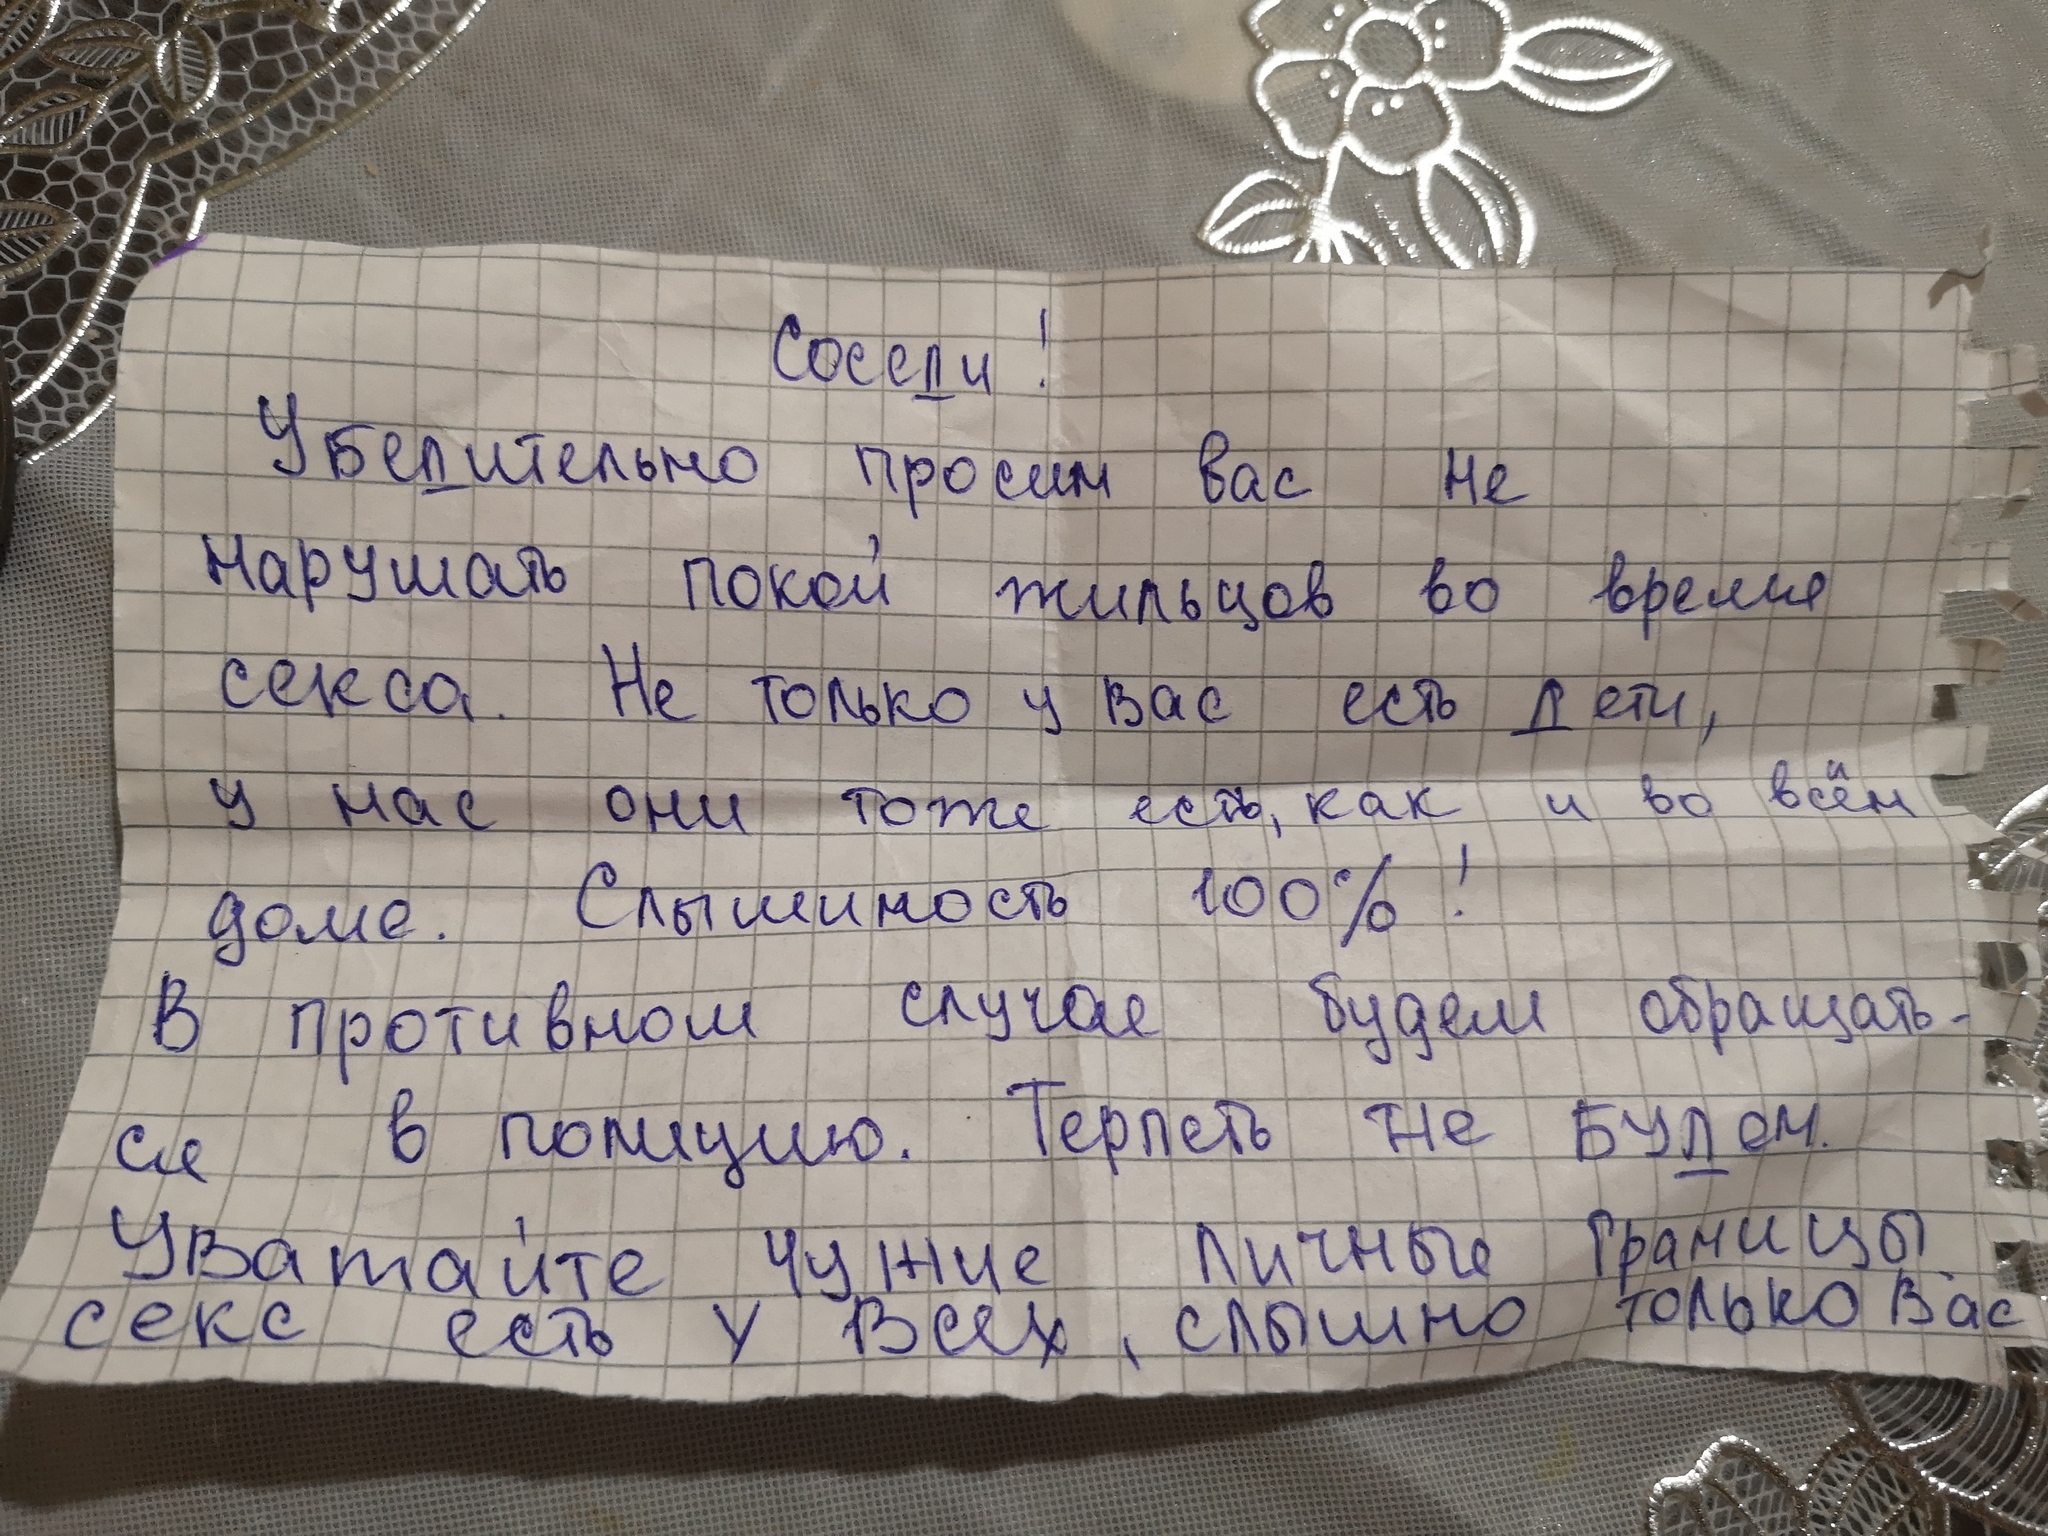 Соседи!
Убедительно просим вас не
нарушать покой жильцов во время
секса. Не только у вас есть дети,
у нас они тоже есть, как и во всём
доме. Слышимость 100%!
В противном случае будем обращать-
ся в полицию. Терпеть не будем.
Уважайте чужие личные границы
секс есть у всех, слышно только вас